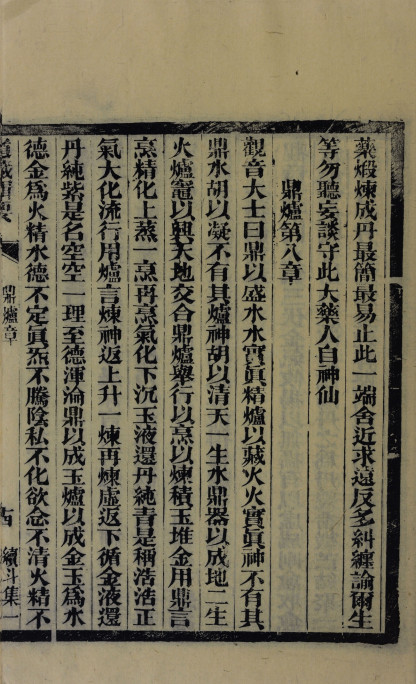 藥煅煉成丹最簡最易止此一端舍近求遠反多糾纏諭爾生
等勿聽妄談守此大藥人自神仙
鼎爐第八章
觀音大士曰鼎以盛水水實眞精爐以藏火火實眞神不有其
鼎水胡以凝不有其爐神胡以清天一生水鼎器以成地二生
火爐竈以興天地交合鼎爐舉行以烹以煉積玉堆金用鼎言
烹精化上蒸一烹再烹氣化下沉玉液還丹純青是稱浩浩正
氣大化流行用爐言煉神返上升一煉再煉虛返下循金液還
丹純紫是名空空一理至德渾淪鼎以成玉爐以成金玉爲水
德金爲火精水德不定眞炁不騰陰私不化欲念不清火精不
道藏輯要
鼎爐章
續斗集一